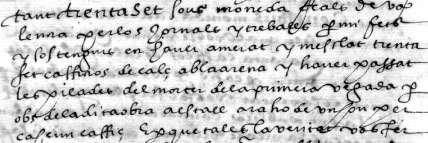 tant trenta set sous moneda Reals de Va
lencia per los Jornals y treballs per mi fets
y sostenguts en haver amerat y mesclat trenta
set caffisos de cals ab la arena y haver passat
les pilades del morter de la primera vegada per
obs de la dita obra al stall a raho de un sou per
cascun caffiç E perque tal es la veritat vos fer